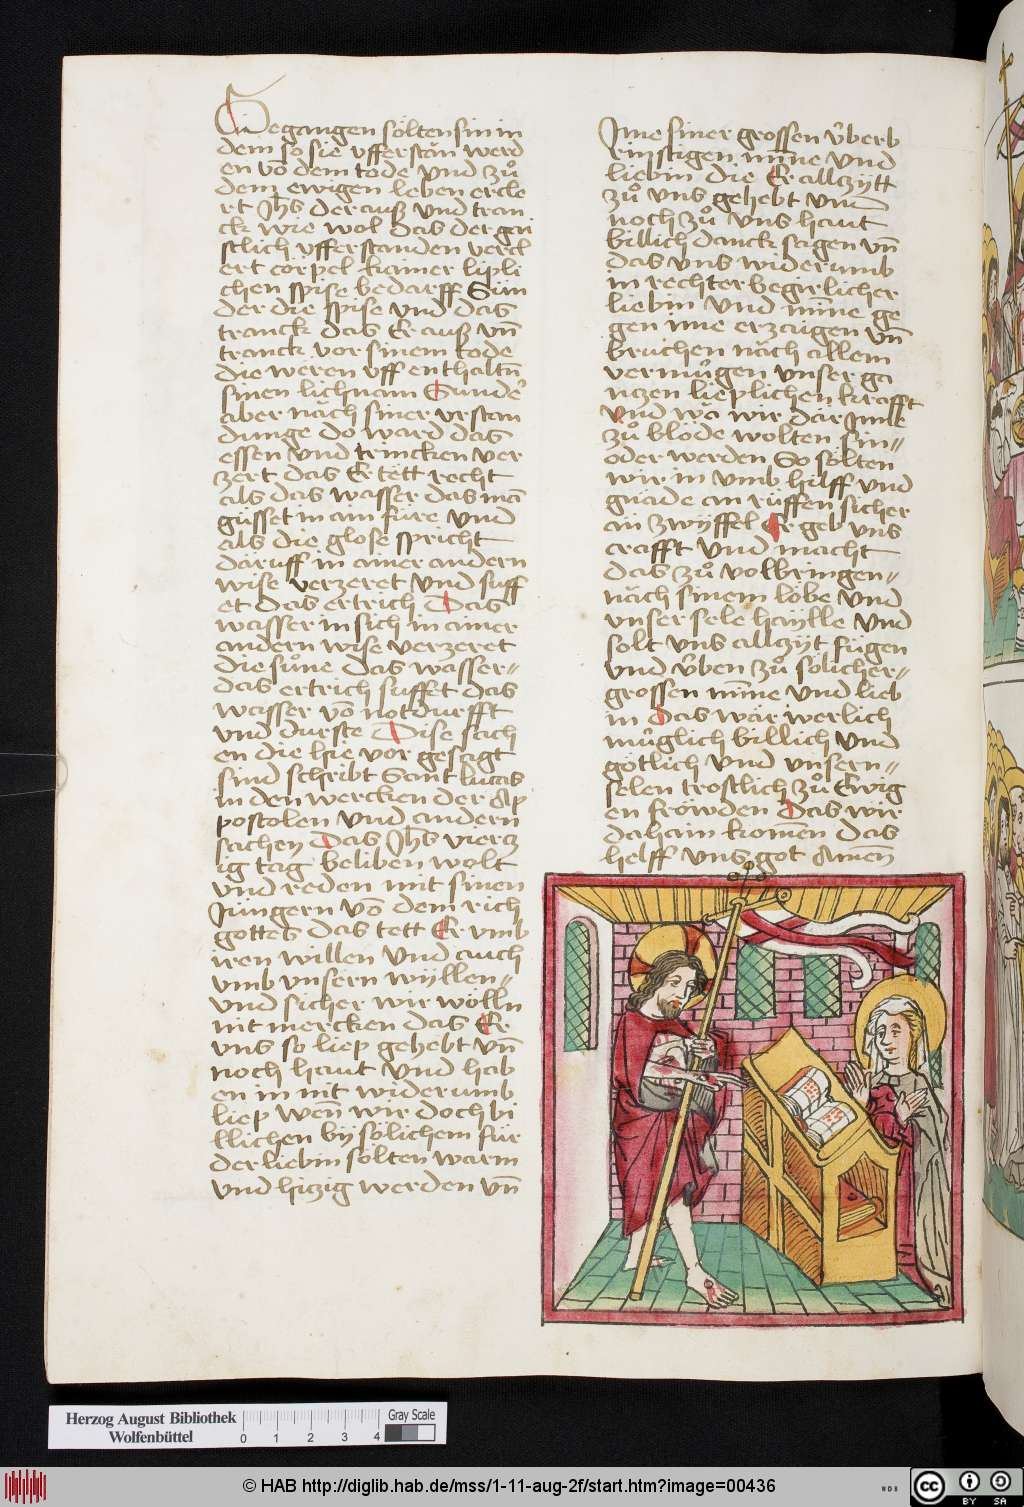 Gegangen sölten sin in
dem so sie vfferstan werd
en vō dem tode vnd zů
dem ewigen leben ercle
rt Jhs der auß vnd tran
ck wie wol das der gai
stlich vfferstanden vercl
ert cörpel kainer lipli
chen spise bedarff Sün
der die spise vnd das
tranck das Er auß vn̄
tranck vor sinem tode
die weren vff enthaltn̄
sinen lichnam Sunder
aber nach siner vrstan
dunge do ward das
essen vnd trincken ver
zert das Er tett recht
als das wasser das mā
güsset in ain füre vnd
als die glose spricht
daruff in ainer andern
wise verzeret vnd suff
et das ertrich Das
wasser in sich in ainer
andern wise verzeret
die sůne das wasser=
das ertrich suffet das
wasser vō notdurfft
vnd durste Dise sach
en die hie vor gesagt
sind schribt Sant lucas
in den wercken der Ap
postolen vnd andern
sachen Das Jhs vierz
ig tag beliben wolt
vnd reden mit sinen
Jüngern vō dem rich
gottes das tett Er vmb
iren willen vnd auch
vmb vnsern wyllen=
vnd sicher wir wölln
nit mercken das Er
vns so liep gehebt vn̄
noch haut vnd hab
en in nit widerumb
liep wen̄ wir doch bi
llichen by sölichem für
der liebin sölten warm
vnd hizig werden vn̄
Jme siner grossen v̊berb
rinstigen min̄e vnd
liebin die Er allzytt
zů vns gehebt vnn
noch zů vns haut
billich danck sagen vn̄
das vns widerumb
in rechter begirlicher
liebin vnd min̄e ge
gen ime erzaigen vn̄
bruchen näch allem
vermügen vnser ga
nczen lieplichen krafft
vnd wä wir där Jnnē
zů blöde wolten sin=
oder werden So sölten
wir in vmb hilff vnd
gnade an rüffen sicher
än zwyffel Er geb vns
crafft vnd macht
das zů volbringen=
näch sinem löbe vnd
vnser sele haylle vnd
solt vns allzyt fügen
vnd v̊ben zů sölicher=
grossen min̄e vnd lieb
in Das wär werlich
müglich billich vnd
götlich vnd vnsern=
selen trostlich zů Ewig
en fröwden Das wir
dahaim komēn das
helff vns got Amen̄
Herzog August Bibliothek
Wolfenbüttel
0 1 2 3 4
Gray Scale
© HAB http://diglib.hab.de/mss/1-11-aug-2f/start.htm?image=00436
WDB
cc BY SA